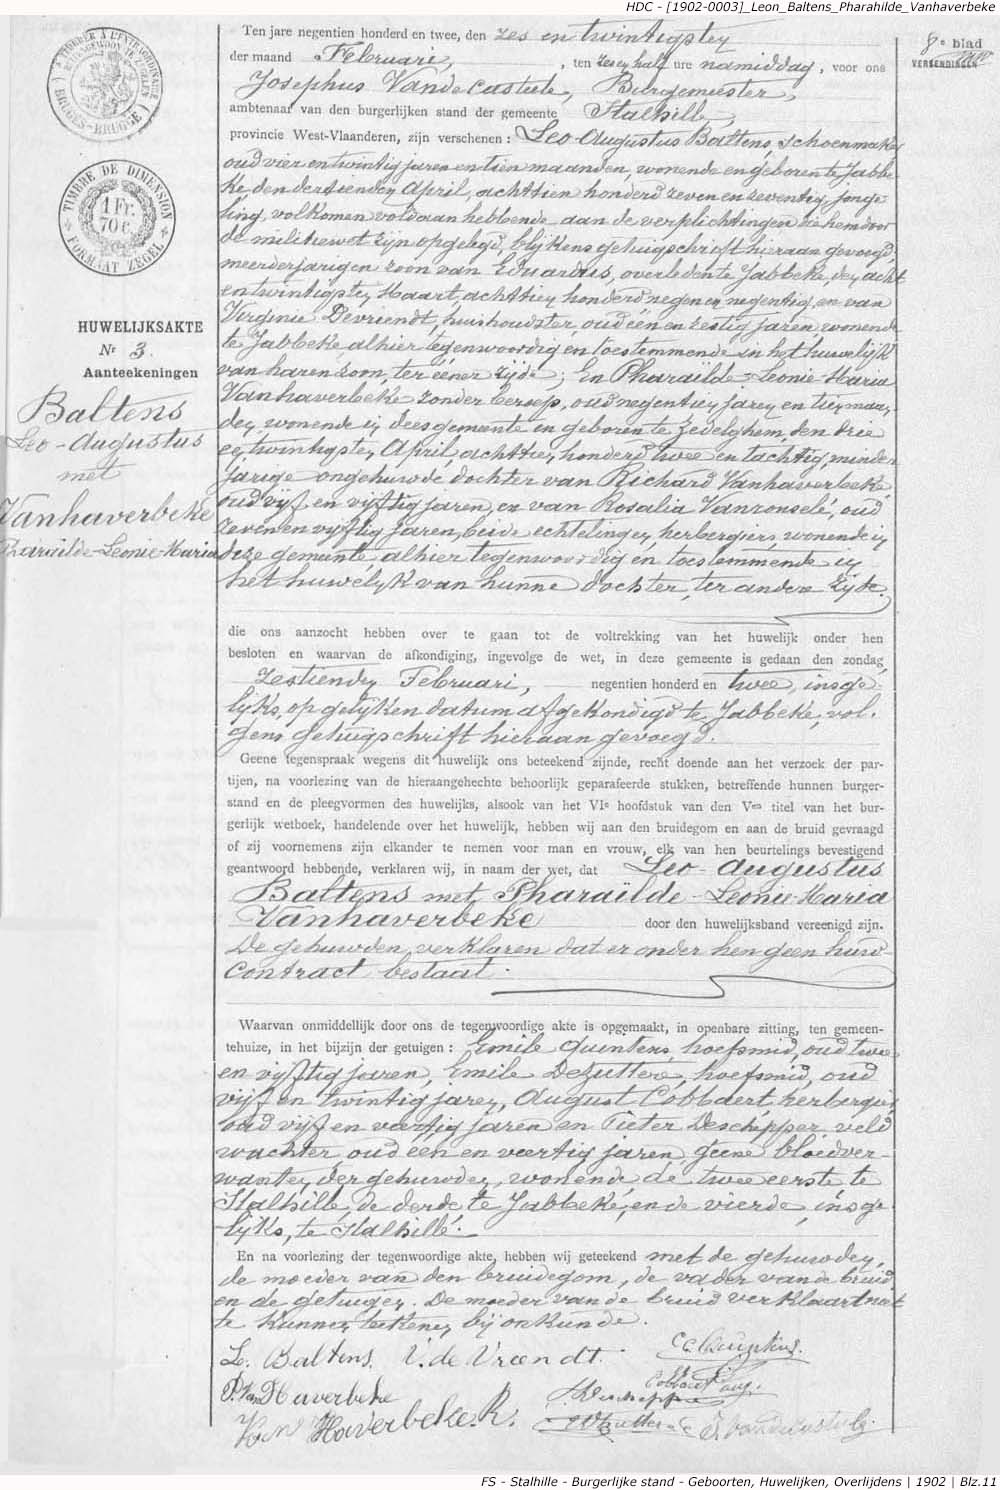 HDC - [1902-0003]_Leon_Baltens_Pharahilde_Vanhaverbeke
8e blad
VERZENDINGEN
TIMBRE A L'EXTRAORDINAIRE
BRUGES-BRUGGE
TIMBRE DE DIMENSION
1 Fr.
70 c.
FORMAAT ZEGEL
HUWELIJKSAKTE
Nr 3.
Aanteekeningen
Baltens
Leo-Augustus
met
Vanhaverbeke
Pharaïlde-Leonie-Maria
Ten jare negentien honderd en twee, den zes en twintigsten
der maand Februari, ten zes en half ure namiddag, voor ons
Josephus Vandecasteele, Burgemeester,
ambtenaar van den burgerlijken stand der gemeente Stalhille,
provincie West-Vlaanderen, zijn verschenen: Leo-Augustus Baltens, schoenmaker
oud vier en twintig jaren en tien maanden, wonende en geboren te Jabbe-
ke, den dertienden April, achttien honderd zeven en zeventig, jonge-
ling, volkomen voldaan hebbende aan de verplichtingen die hem door
de militiewet zijn opgelegd, blijkens getuigschrift hieraan gevoegd,
meerderjarigen zoon van Eduardus, overleden te Jabbeke, den acht
en twintigsten Maart, achttien honderd negen en negentig, en van
Virginie Devriendt, huishoudster, oud één en zestig jaren wonende
te Jabbeke, alhier tegenwoordig en toestemmende in het huwelijk
van haren zoon, ter eener zijde; En Pharaïlde-Leonie-Maria
Vanhaverbeke zonder beroep, oud negentien jaren en tien maan-
den, wonende in deze gemeente en geboren te Zedelghem, den drie
en twintigsten April, achttien honderd twee en tachtig, minder-
jarige ongehuwde dochter van Richard Vanhaverbeke
oud vijf en vijftig jaren, en van Rosalia Vanzonselé, oud
zeven en vijftig jaren, beide echtelingen, herbergiers, wonende in
deze gemeente, alhier tegenwoordig en toestemmende in
het huwelijk van hunne dochter, ter andere zijde.
die ons aanzocht hebben over te gaan tot de voltrekking van het huwelijk onder hen
besloten en waarvan de afkondiging, ingevolge de wet, in deze gemeente is gedaan den zondag,
zestienden Februari, negentien honderd en twee, insge-
lijks, op gelijken datum afgekondigd te Jabbeke, vol-
gens getuigschrift hieraan gevoegd.
Geene tegenspraak wegens dit huwelijk ons beteekend zijnde, recht doende aan het verzoek der par-
tijen, na voorlezing van de hieraangehechte behoorlijk geparafeerde stukken, betreffende hunnen burger-
stand en de pleegvormen des huwelijks, alsook van het VIe hoofdstuk van den Ven titel van het bur-
gerlijk wetboek, handelende over het huwelijk, hebben wij aan den bruidegom en aan de bruid gevraagd
of zij voornemens zijn elkander te nemen voor man en vrouw, elk van hen beurtelings bevestigend
geantwoord hebbende, verklaren wij, in naam der wet, dat Leo-Augustus
Baltens met Pharaïlde-Leonie-Maria
Vanhaverbeke door den huwelijksband vereenigd zijn.
De gehuwden verklaren dat er onder hen geen huw-
contract bestaat.
Waarvan onmiddellijk door ons de tegenwoordige akte is opgemaakt, in openbare zitting, ten gemeen-
tehuize, in het bijzijn der getuigen: Emile Quintens, hoefsmid, oud twee
en vijftig jaren, Emile Dezuttere, hoefsmid, oud
vijf en twintig jaren, August Cobbaert, herbergier,
oud vijf en veertig jaren en Pieter Deschepper, veld-
wachter, oud een en veertig jaren, geene bloedver-
wanten der gehuwden, wonende de twee eerste te
Stalhille, de derde te Jabbeke, en de vierde, insge-
lijks, te Stalhille.
En na voorlezing der tegenwoordige akte, hebben wij geteekend met de gehuwden,
de moeder van den bruidegom, de vader van de bruid
en de getuigen. De moeder van de bruid verklaart niet
te kunnen teekenen bij onkunde.
L. Baltens. V. de Vrendt. E. Quintens.
P. Van Haverbeke Cobbaert Aug.
P. Deschepper
Van Haverbeke R. E. Dezuttere J. Vandecasteele
FS - Stalhille - Burgerlijke stand - Geboorten, Huwelijken, Overlijdens | 1902 | Blz.11